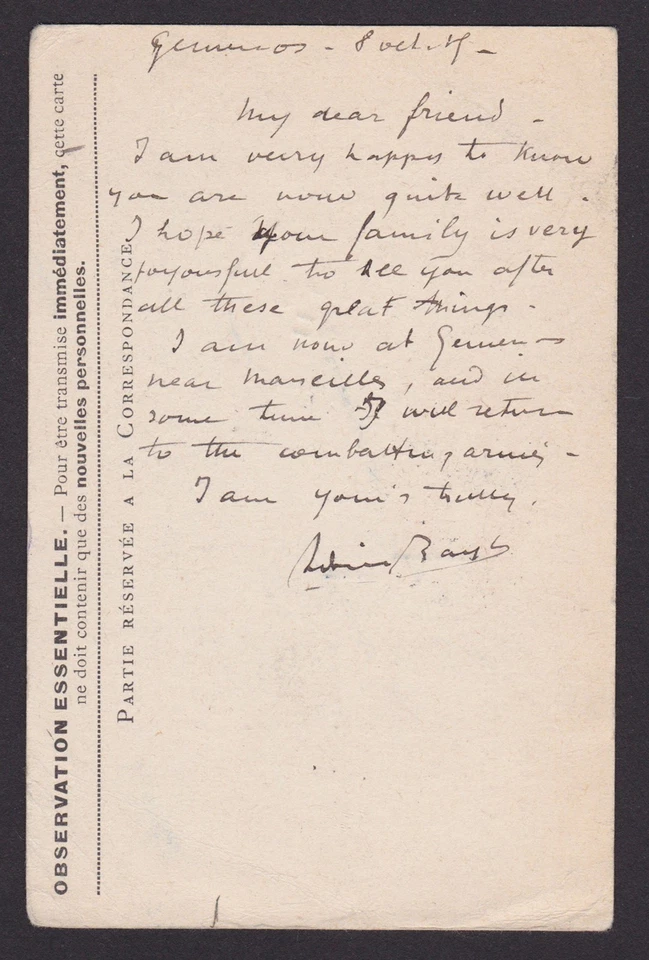 OBSERVATION ESSENTIELLE. — Pour être transmise immédiatement, cette carte
ne doit contenir que des nouvelles personnelles.
PARTIE RÉSERVÉE A LA CORRESPONDANCE
Gemenos - 8 oct. 15 -
My dear friend -
I am verry happy to know
you are now quite well.
I hope your family is very
joyousfull to see you after
all these great things -
I am now at Gemenos
near Marseilles, and in
some time I will return
to the combatting armies -
I am your's trully.